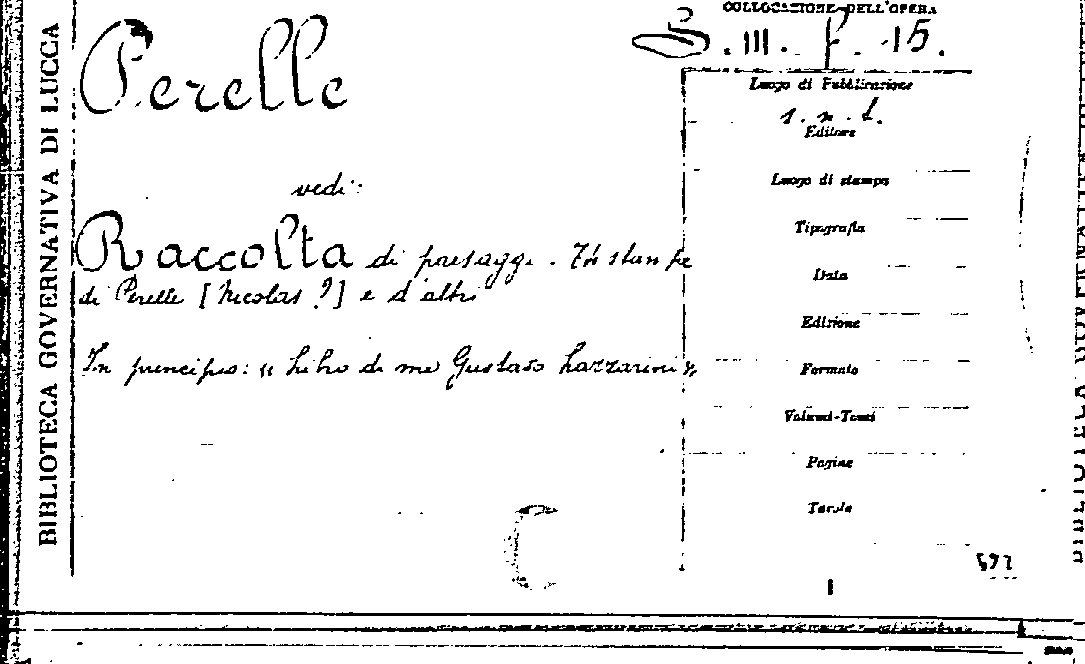 BIBLIOTECA GOVERNATIVA DI LUCCA
COLLOCAZIONE DELL'OPERA
S. III. f. 15.
Perelle
vedi:
Raccolta di paesaggi. In stampe
di Perelle [Nicolas?] e d'altri
In principio: "Libro di me Gustavo Lazzarini"
Luogo di Pubblicazione
s. n. t.
Editore
Luogo di stampa
Tipografia
Data
Edizione
Formato
Volumi-Tomi
Pagine
Tavole